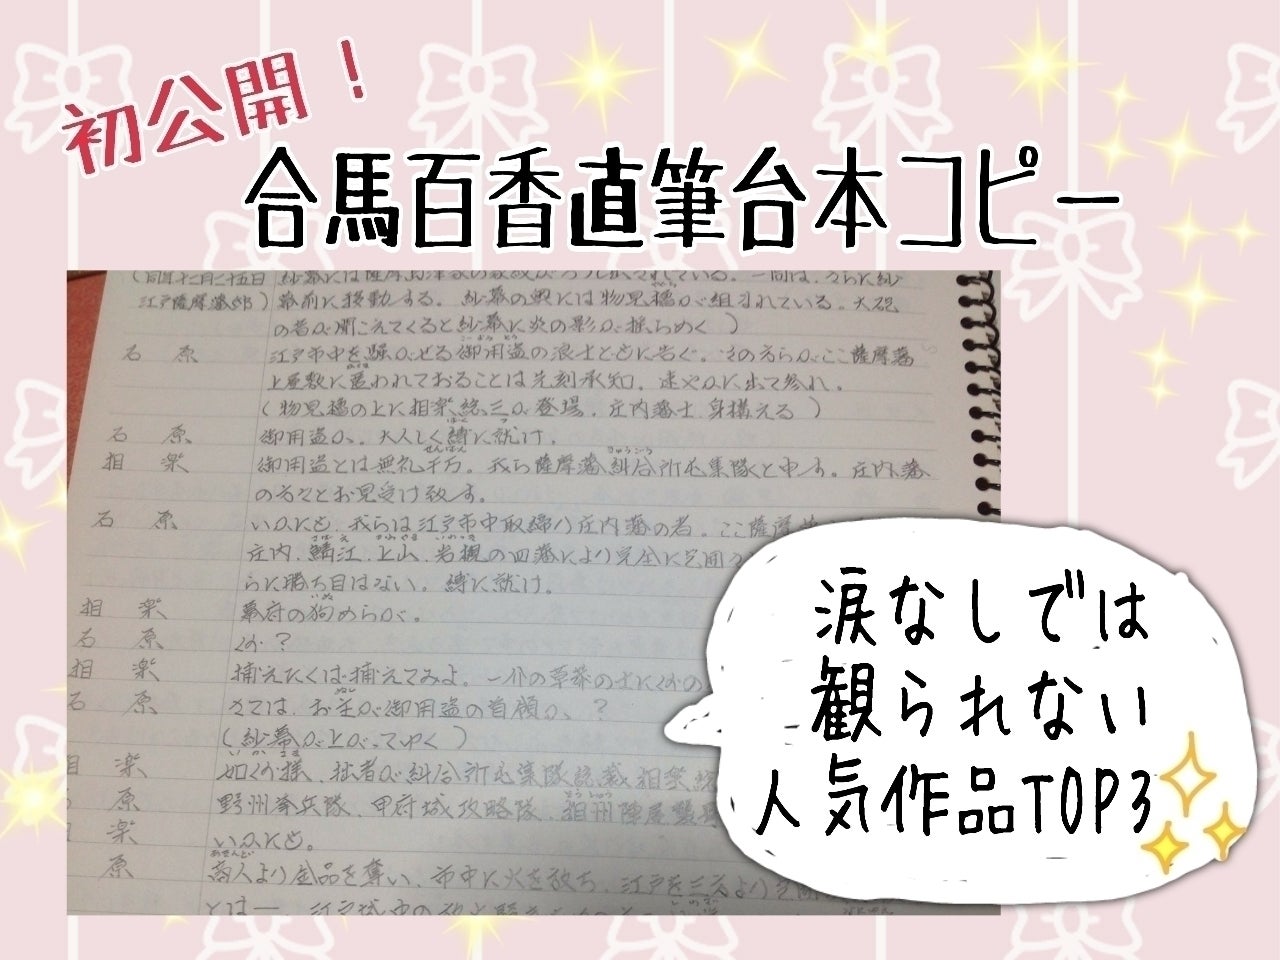 初公開！
合馬百香直筆台本コピー
(同年十二月二十五日 紗幕には薩摩島津家の家紋が
江戸薩摩藩邸) 幕前に移動する。紗幕の奥には物見櫓が組まれている。大砲
の音が聞こえてくると紗幕に炎の影が揺らめく)
石原 江戸市中を騒がせる御用盗の浪士どもに告ぐ。その方らがここ薩摩藩
上屋敷に匿われておることは先刻承知、速やかに出て参れ。
(物見櫓の上に相楽総三が登場、庄内藩士、身構える)
石原 御用盗が、大人しく縛に就け。
相楽 御用盗とは無礼千万。我ら薩摩藩糾合所屯集隊と申す。庄内藩
の方々とお見受け致す。
石原 いかにも、我らは江戸市中取締り庄内藩の者。ここ薩摩
庄内、鯖江、上山、岩槻の四藩により完全に包囲
らに勝ち目はない。縛に就け。
相楽 幕府の狗めらが。
石原 くが？
相楽 捕えたくば捕えてみよ。一介の草莽の士に
石原 さては、お主が御用盗の首領か、？
(紗幕が上がってゆく)
相楽 如く様、拙者が糾合所屯集隊総裁相楽総
原 野州挙兵隊、甲府城攻略隊、相州陣屋襲撃
楽 いかにも。
原 商人より金品を奪い、市中に火を放ち、江戸を三方より
とは—、江戸城中の
涙なしでは
観られない
人気作品TOP3